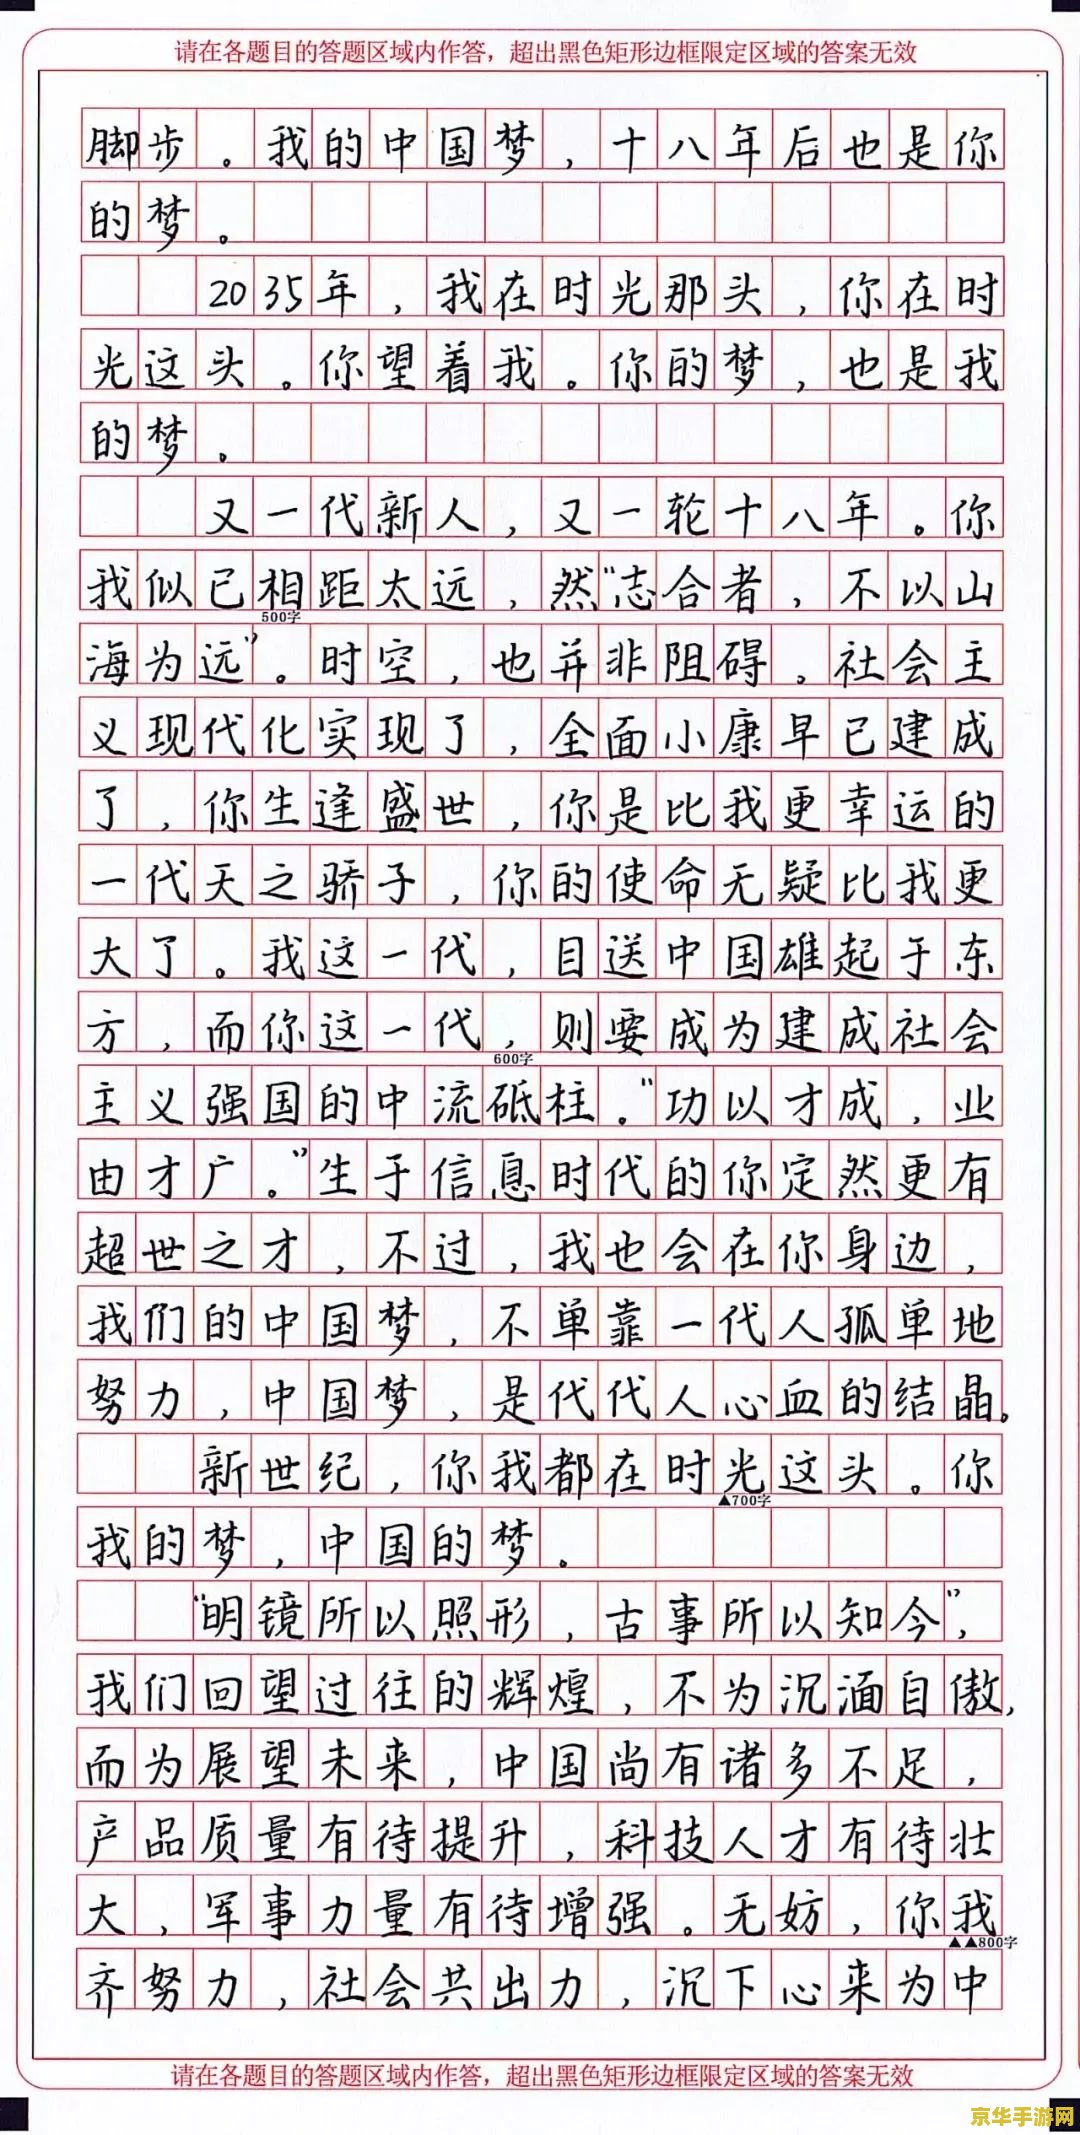 请在各题目的答题区域内作答，超出黑色矩形边框限定区域的答案无效
脚步。我的中国梦，十八年后也是你
的梦。
2035年，我在时光那头，你在时
光这头。你望着我。你的梦，也是我
的梦。
又一代新人，又一轮十八年。你
我似已相距太远，然“志合者，不以山
500字
海为远”。时空，也并非阻碍。社会主
义现代化实现了，全面小康早已建成
了，你生逢盛世，你是比我更幸运的
一代天之骄子，你的使命无疑比我更
大了。我这一代，目送中国雄起于东
方，而你这一代，则要成为建成社会
600字
主义强国的中流砥柱。“功以才成，业
由才广。”生于信息时代的你定然更有
超世之才，不过，我也会在你身边，
我们的中国梦，不单靠一代人孤单地
努力，中国梦，是代代人心血的结晶。
新世纪，你我都在时光这头。你
▲700字
我的梦，中国的梦。
“明镜所以照形，古事所以知今”，
我们回望过往的辉煌，不为沉湎自傲，
而为展望未来，中国尚有诸多不足，
产品质量有待提升，科技人才有待壮
大，军事力量有待增强。无妨，你我
▲▲800字
齐努力，社会共出力，沉下心来为中
请在各题目的答题区域内作答，超出黑色矩形边框限定区域的答案无效
京华手游网